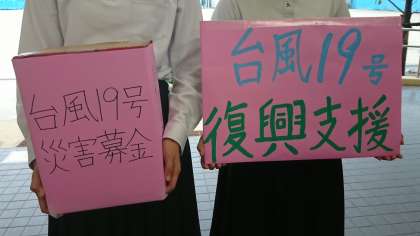 台風19号
災害募金
台風19号
復興支援